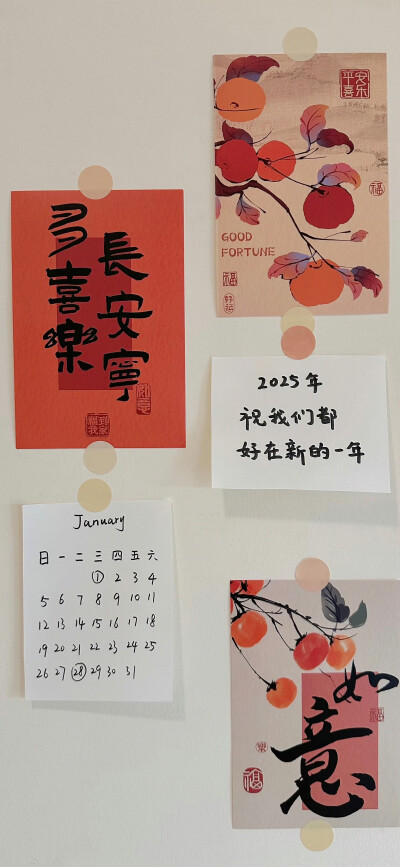 平安
喜乐
福
GOOD
FORTUNE
福
好运
長安寧
多喜樂
2025年
祝我们都
好在新的一年
January
日 一 二 三 四 五 六
1 2 3 4
5 6 7 8 9 10 11
12 13 14 15 16 17 18
19 20 21 22 23 24 25
26 27 28 29 30 31
如意
福